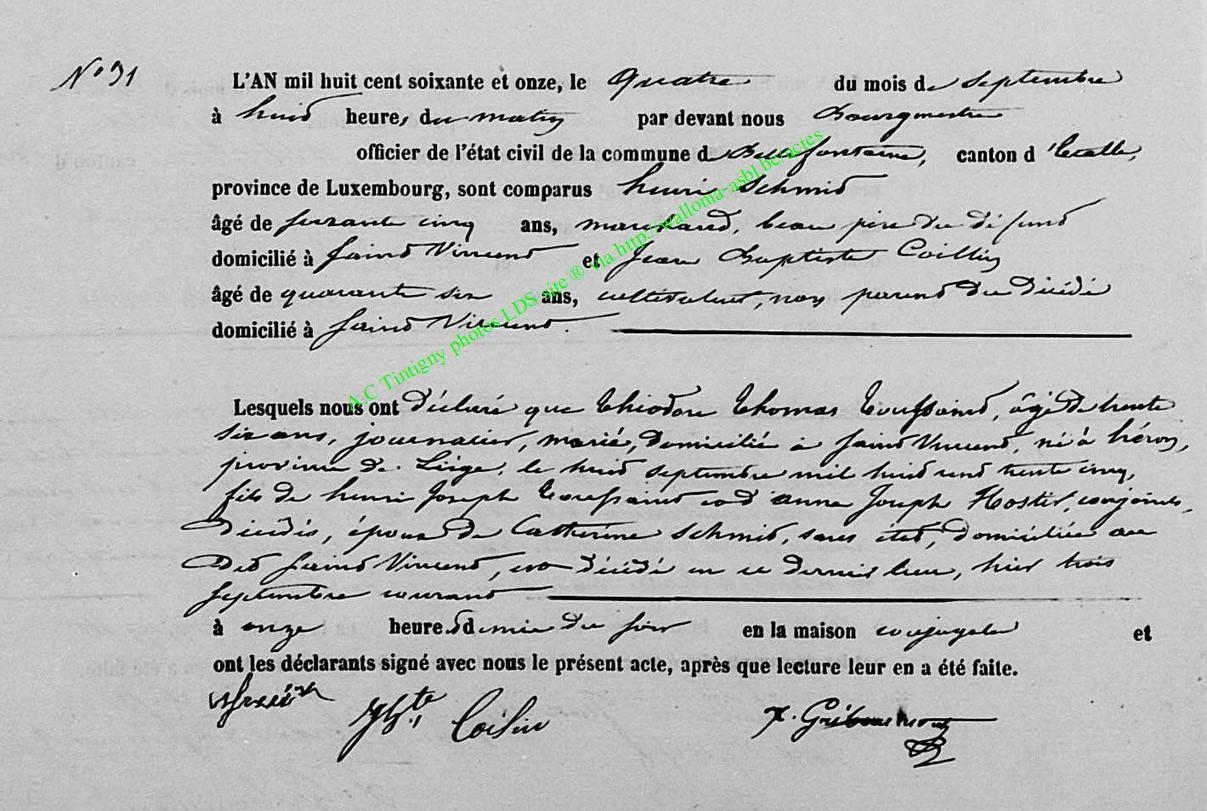 N° 31
L'AN mil huit cent soixante et onze, le quatre du mois de septembre
à huit heures du matin par devant nous Bourgmestre
officier de l'état civil de la commune de Bellefontaine, canton d'Etalle,
province de Luxembourg, sont comparus henri Schmid
âgé de soixante cinq ans, marchand, beau père du défunt
domicilié à Saint Vincent et Jean Baptiste Coillin
âgé de quarante six ans, cultivateur, non parent du décédé
domicilié à Saint Vincent.
A.C Tintigny photos LDS site ® via http://walloma-asbl.be/actes
Lesquels nous ont déclaré que Théodore Thomas Toussaint, âgé de trente
six ans, journalier, marié, domicilié à Saint Vincent, né à héron,
province de Liége, le huit septembre mil huit cent trente cinq,
fils de henri Joseph Toussaint et d'anne Joseph conjoints,
décédés, époux de Catherine Schmid, sans état, domiciliée au
dit Saint Vincent, est décédé en ce dernier lieu, hier trois
septembre courant
à onze heures demie du soir en la maison conjugale et
ont les déclarants signé avec nous le présent acte, après que lecture leur en a été faite.
JBte Coilin